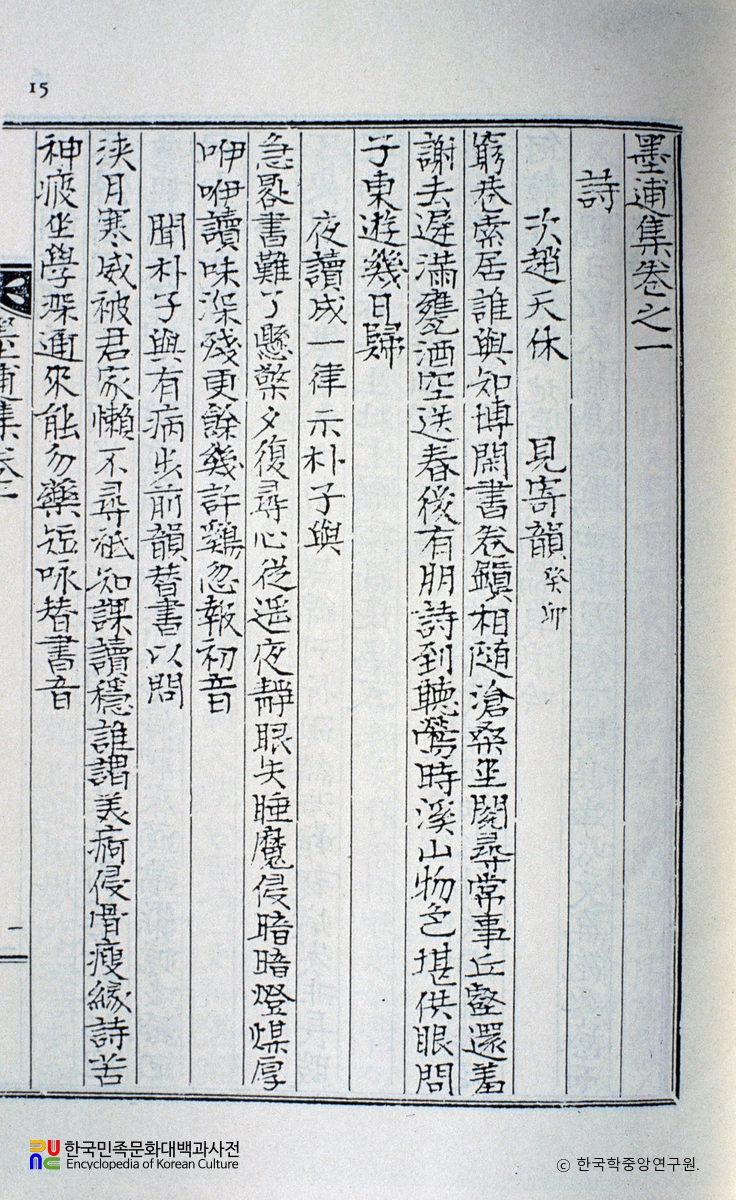 15
墨浦集卷之一
詩
次趙天休 見寄韻 癸卯
窮巷索居誰與知博關書卷鎭相随滄桑坐閱尋常事丘壑還羞
謝去遲滿甕酒空迭春後有朋詩到聽鶯時溪山物色堪供眼問
子東遊幾日歸
夜讀成一律示朴子與
急畧書難了懸檠夕復尋心從遥夜靜眼失睡魔侵暗暗燈煤厚
咿咿讀味深殘更餘幾許鷄忽報初音
聞朴子與有病步前韻替書以問
浹月寒威被君家懶不尋祗知課讀穩誰謂美痾侵骨瘦緣詩苦
神疲坐學深通來能勿藥短咏替書音
한국민족문화대백과사전
Encyclopedia of Korean Culture
© 한국학중앙연구원.